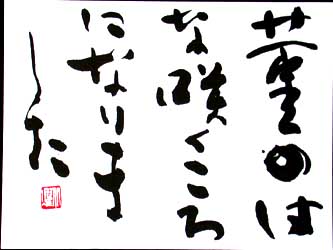 菫のは
な咲くころ
になりま
した